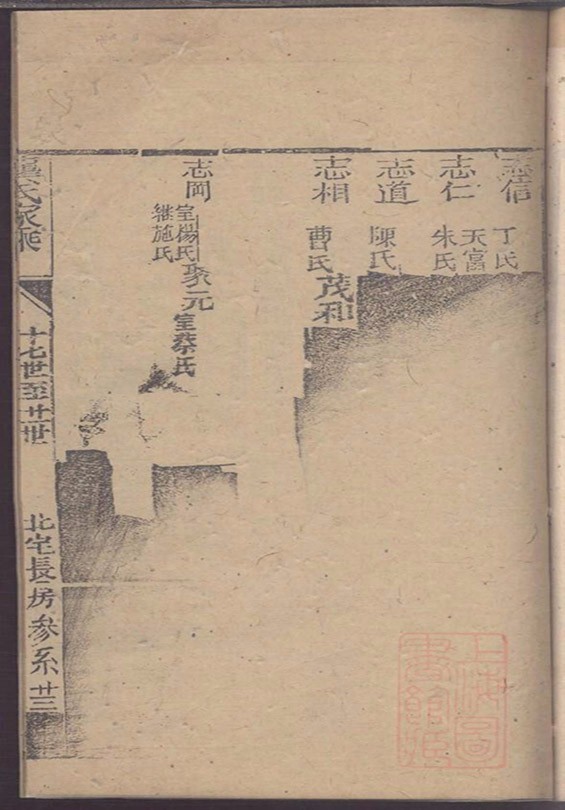 志信
丁氏
志仁
天富
朱氏
志道
陳氏
志相
曹氏
茂和
志岡
室楊氏
継施氏
聚元
室蔡氏
氏家乘
十七世至廿世
北宅長房參系
廿三
上海圖
書館藏